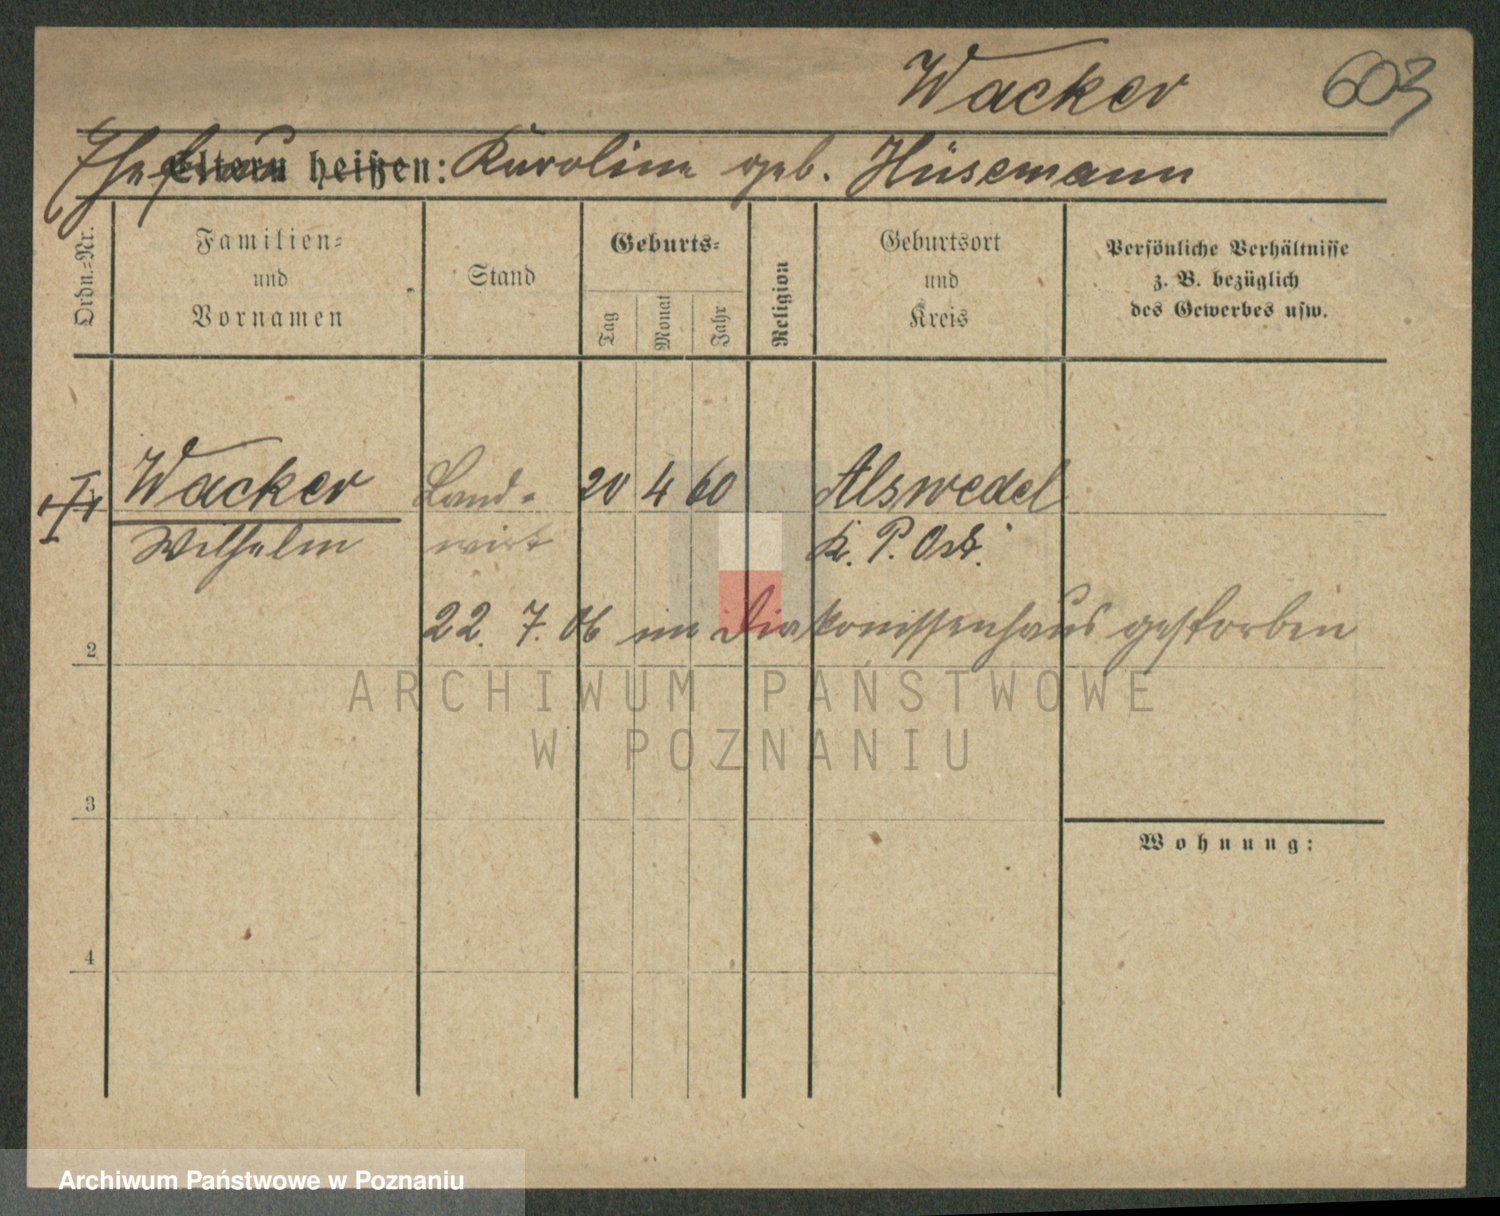 Wacker 603
Ehefrau Karoline geb. Hüsemann
Eltern heißen:
Ordn.-Nr.
Familien-
und
Vornamen
Stand
Geburts-
Tag
Monat
Jahr
Religion
Geburtsort
und
Kreis
Persönliche Verhältnisse
z. B. bezüglich
des Gewerbes usw.
Wacker Land- 20 4 60 Alswedel
Wilhelm wirt K. P. Ost.
22. 7. 06 im Diakonissenhaus gestorben
2
ARCHIWUM PAŃSTWOWE
W POZNANIU
3
Wohnung:
4
Archiwum Państwowe w Poznaniu